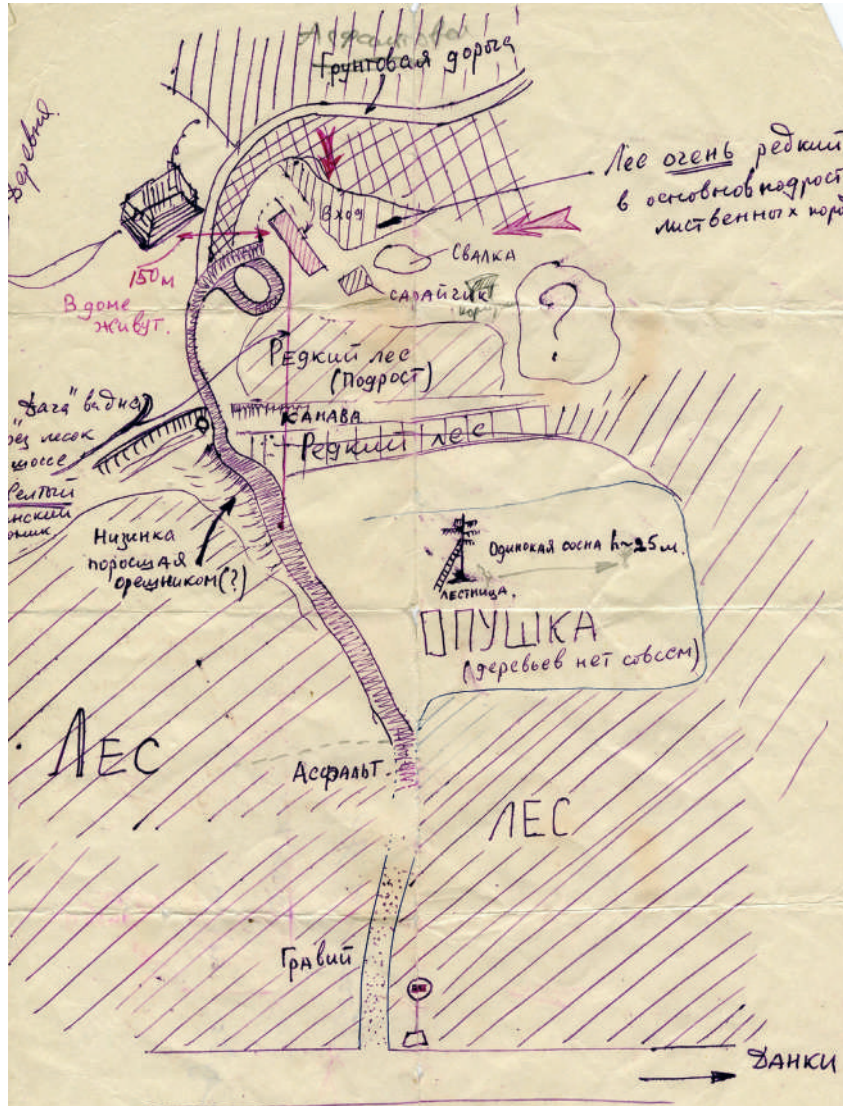 Асфальтовая
Грунтовая дорога
Деревня
Лес очень редкий
в основном подрост
лиственных пород
Вход
Свалка
150 м
сарайчик
В доме
живут.
?
Редкий лес
(Подрост)
"Дача" видна
лесок
шоссе
Канава
Редкий лес
Низинка
поросшая
орешником(?)
Одинокая сосна h~25 м.
Лестница.
Опушка
(деревьев нет совсем)
Лес
Асфальт.
Лес
Гравий
Данки